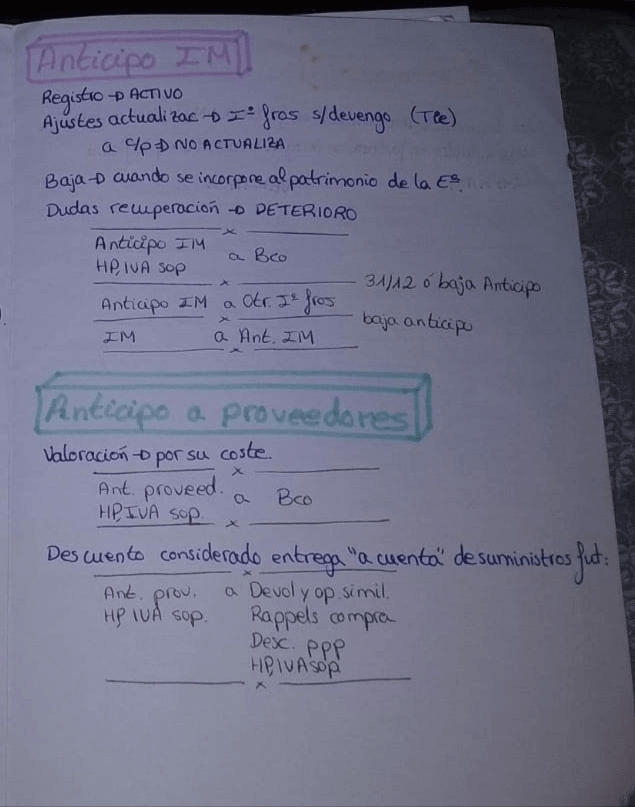 Anticipo IM
Registro → ACTIVO
Ajustes actualizac → Iº fros s/devengo (TIE)
a c/p → NO ACTUALIZA
Baja → cuando se incorpore al patrimonio de la Eª.
Dudas recuperación → DETERIORO
x
Anticipo IM
HP, IVA sop a Bco
x 31/12 ó baja Anticipo
Anticipo IM a Otr. Iº fros
x baja anticipo
IM a Ant. IM
x
Anticipo a proveedores
Valoración → por su coste.
x
Ant. proveed. a Bco
HP, IVA sop.
x
Descuento considerado entrega "a cuenta" de suministros fut:
x
Ant. prov. a Devol y op. simil.
HP, IVA sop. Rappels compra
Desc. ppp
HP, IVA sop
x